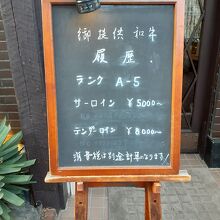 御提供和牛
履歴.
ランク A-5
サーロイン ¥5000〜
テンダーロイン ¥8000〜
消費税は別途計算になります!